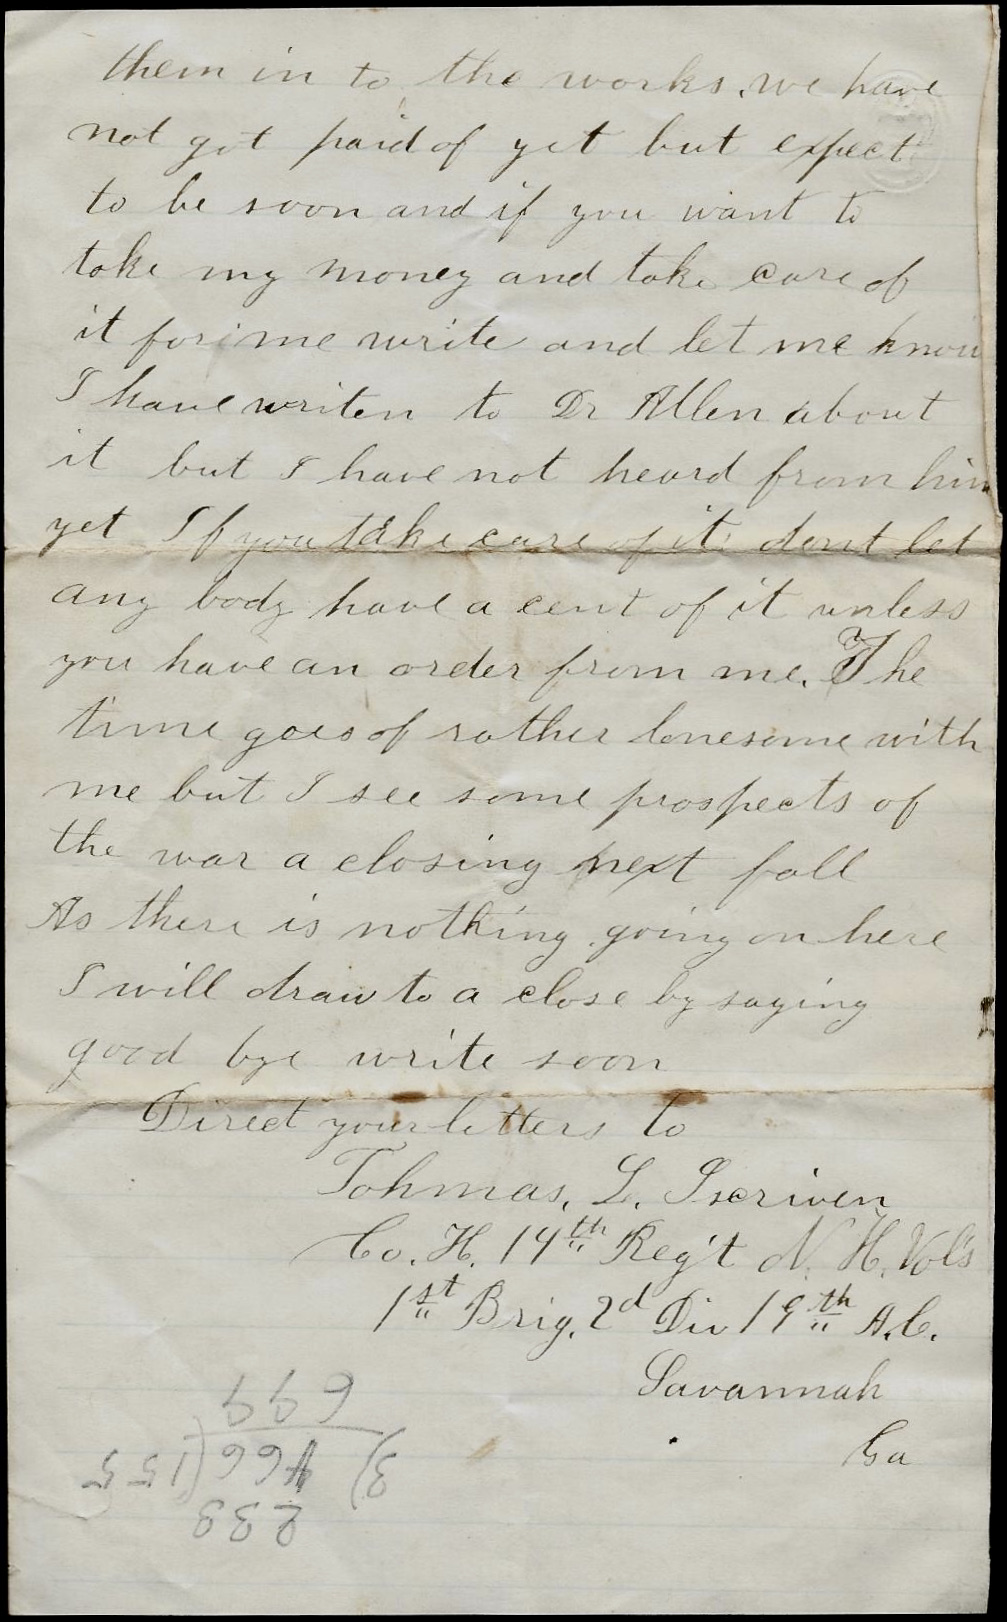 them in to the works. we have
not got paid of yet but expect
to be soon and if you want to
take my money and take care of
it for me write and let me know
I have writen to Dr Allen about
it but I have not heard from him
yet If you take care of it dont let
any body have a cent of it unless
you have an order from me. The
time goes of rather lonesome with
me but I see some prospects of
the war a closing next fall
As there is nothing going on here
I will draw to a close by saying
good bye write soon
Direct your letters to
Tohmas. L. Scriven
Co. H. 14th Reg't N. H. Vol's
1st Brig. 2d Div 19th A.C.
Savannah
Ga
233
3) 466 (155
699